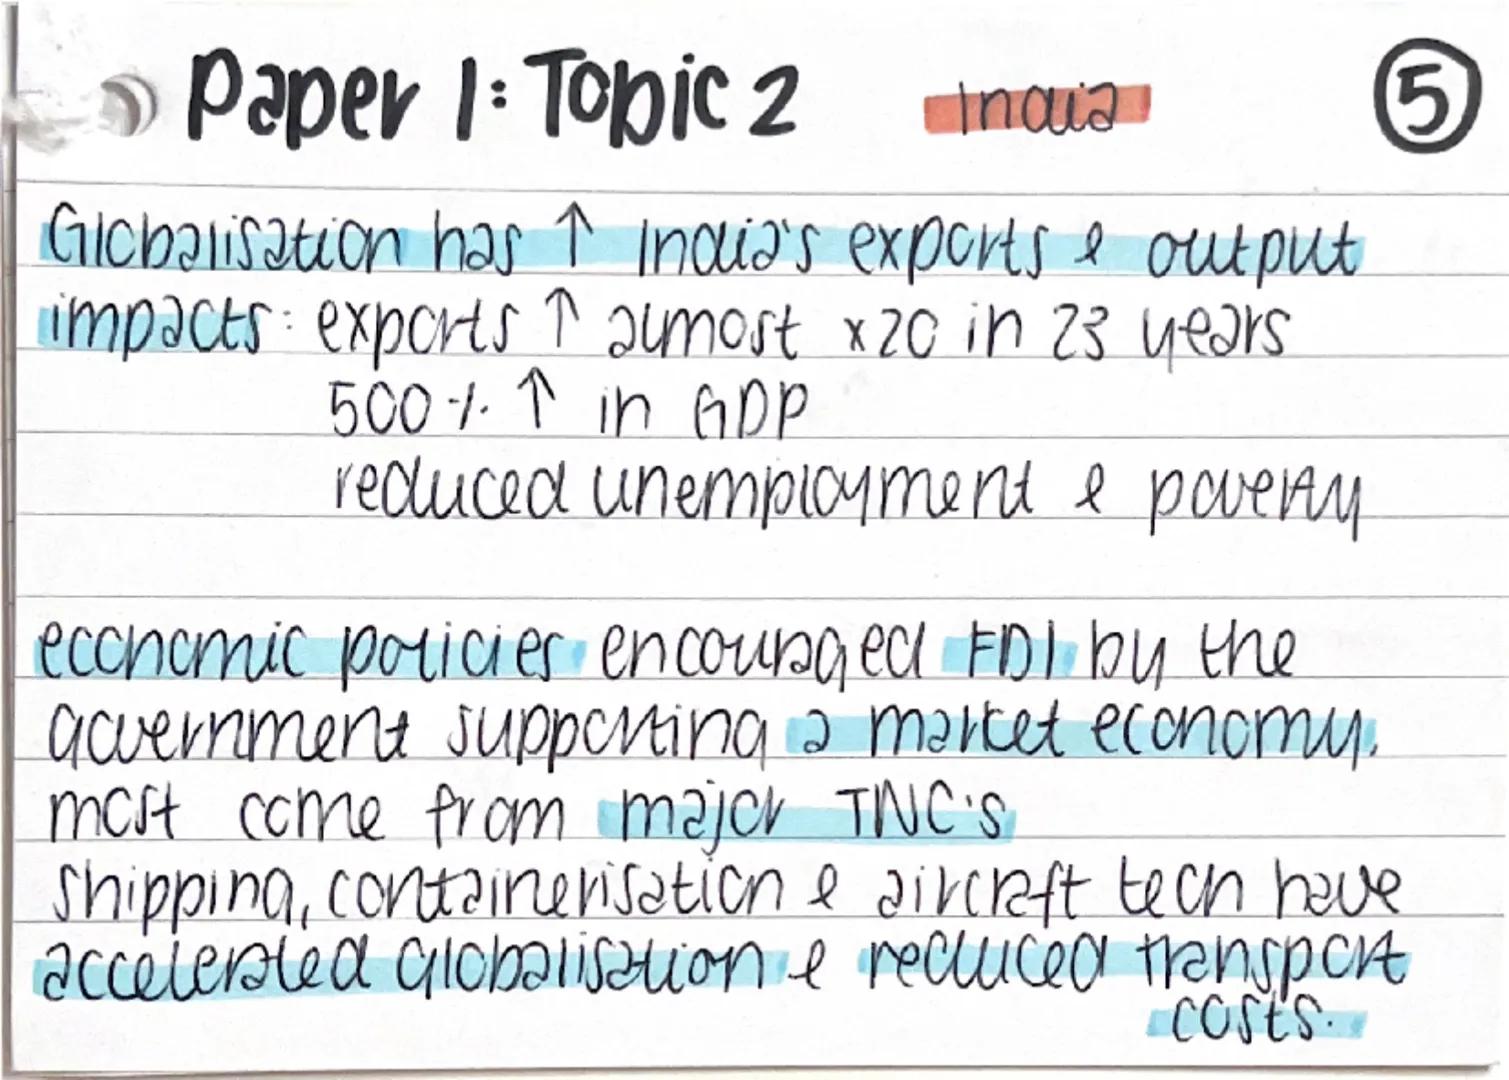 Paper 1: Topic 2 India 5
Globalisation has ↑ India's exports & output
impacts: exports ↑ almost x20 in 23 years
500% ↑ in GDP
reduced unemployment & poverty
economic policies encouraged FDI by the
government supporting a market economy.
most come from major TNC's
shipping, containerisation & aircraft tech have
accelerated globalisation & reduced transport
costs.